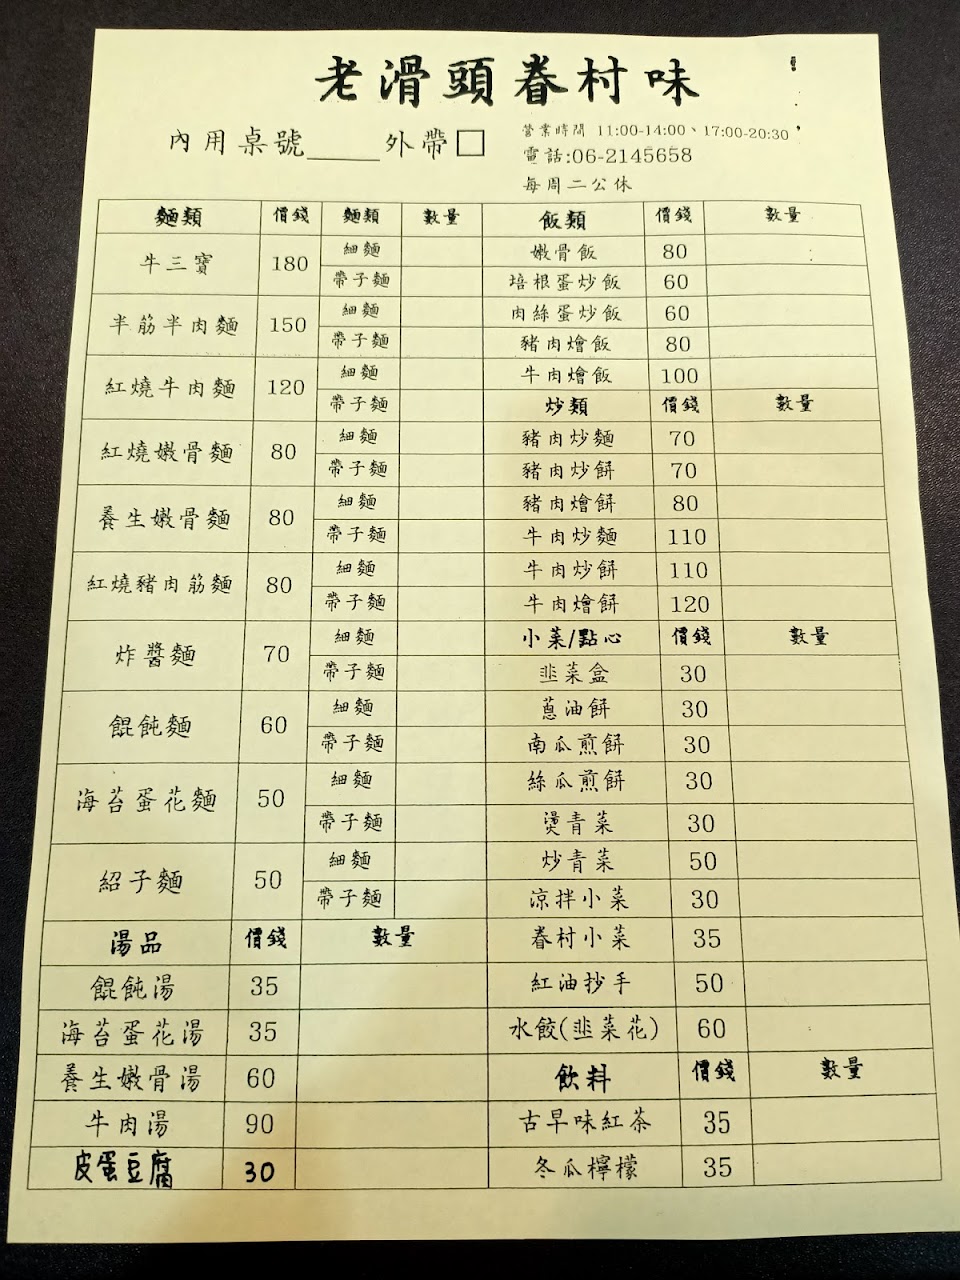 老滑頭眷村味
內用桌號____外帶□
營業時間 11:00-14:00、17:00-20:30
電話:06-2145658
每周二公休
麵類 價錢 麵類 數量
牛三寶 180 細麵
帶子麵
半筋半肉麵 150 細麵
帶子麵
紅燒牛肉麵 120 細麵
帶子麵
紅燒嫩骨麵 80 細麵
帶子麵
養生嫩骨麵 80 細麵
帶子麵
紅燒豬肉筋麵 80 細麵
帶子麵
炸醬麵 70 細麵
帶子麵
餛飩麵 60 細麵
帶子麵
海苔蛋花麵 50 細麵
帶子麵
紹子麵 50 細麵
帶子麵
湯品 價錢 數量
餛飩湯 35
海苔蛋花湯 35
養生嫩骨湯 60
牛肉湯 90
皮蛋豆腐 30
飯類 價錢 數量
嫩骨飯 80
培根蛋炒飯 60
肉絲蛋炒飯 60
豬肉燴飯 80
牛肉燴飯 100
炒類 價錢 數量
豬肉炒麵 70
豬肉炒餅 70
豬肉燴餅 80
牛肉炒麵 110
牛肉炒餅 110
牛肉燴餅 120
小菜/點心 價錢 數量
韭菜盒 30
蔥油餅 30
南瓜煎餅 30
絲瓜煎餅 30
燙青菜 30
炒青菜 50
涼拌小菜 30
眷村小菜 35
紅油抄手 50
水餃(韭菜花) 60
飲料 價錢 數量
古早味紅茶 35
冬瓜檸檬 35